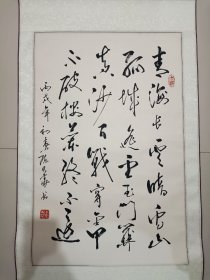 青海长云暗雪山
孤城遥望玉门關
黄沙百戰穿金甲
不破楼蘭终不還
丙戌年初春 书